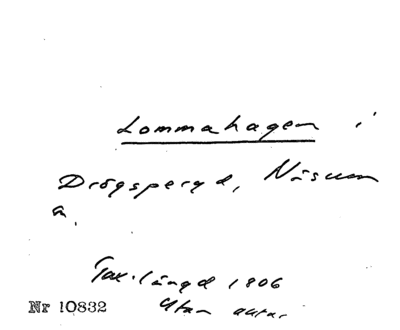 Lommahagen i
Drögsperyd, Näsum
a.
Tax.längd 1806
Utan antar.
Nr 10832